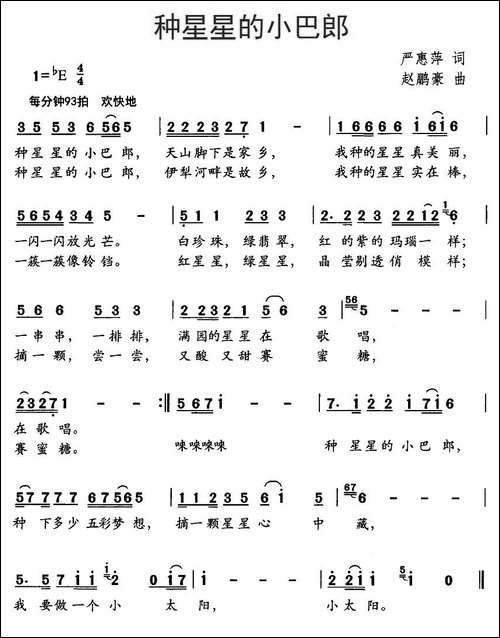 种星星的小巴郎
严惠萍 词
1=♭E 4/4
赵鹏豪 曲
每分钟93拍 欢快地
3 5 5 3 6 5 6 5 | 2 2 2 3 2 7 1 - | 1 6 6 6 6 6 i 6 i 6 |
种 星 星 的 小 巴 郎, 天山脚下是家乡, 我种的星星真美丽,
种 星 星 的 小 巴 郎, 伊犁河畔是故乡, 我种的星星实在棒,
5 6 5 4 3 4 3 5 - | 5 1 1 2 3 3 | 2· 2 2 3 2 2 1 2 6 |
一闪一闪放光芒。 白珍珠, 绿翡翠, 红 的紫的玛瑙一 样;
一簇一簇像铃铛。 红星星, 绿星星, 晶 莹剔透俏 模样;
5 6 6 5 3 3 | 2 2 3 2 1 2 5 6 | 3 5 - - - |
一 串 串, 一 排 排, 满 园的星星 在 歌 唱,
摘 一 颗, 尝 一 尝, 又 酸 又 甜 赛 蜜 糖,
2 3 2 7 1 - - :‖ 5 6 7 i | 7· i 2 2 i 7 i 6 |
在 歌 唱。 唻唻唻唻 种 星星的 小 巴 郎,
赛 蜜 糖。
5 7 7 7 7 6 7 5 6 5 | 1 1 2 3 5 5 6 i | 5 6 - - - |
种 下多少 五彩梦 想, 摘一颗星星 心 中 藏,
5· 5 7 i i 2 0 i 7 | i - - - | 2 2 2 i i 0 ‖
我 要做一个 小 太 阳, 小太阳。